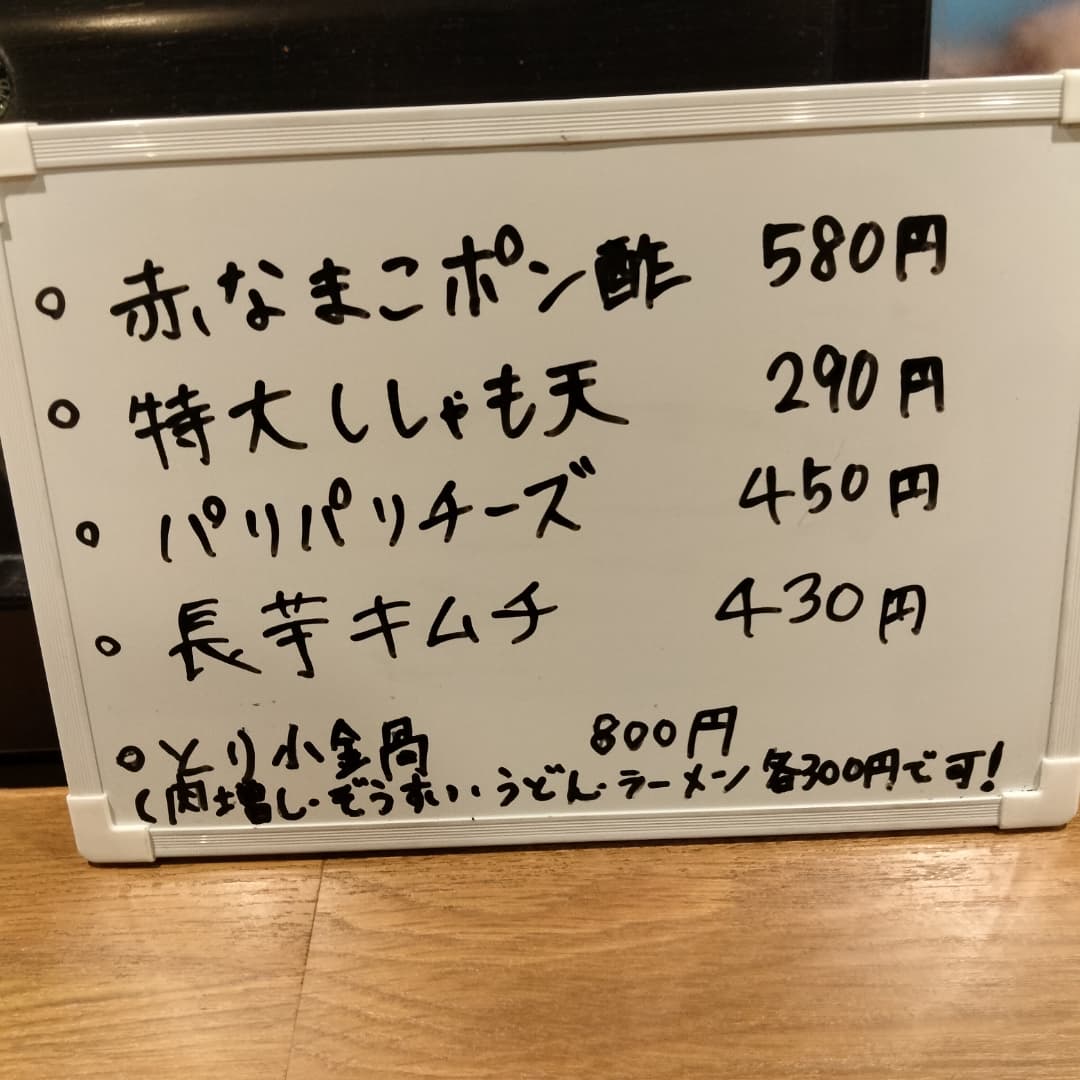 ○ 赤なまこポン酢 580円
○ 特大ししゃも天 290円
○ パリパリチーズ 450円
○ 長芋キムチ 430円
○とり小金咼 800円
(肉増し・ぞうすい・うどん・ラーメン 各300円で可!